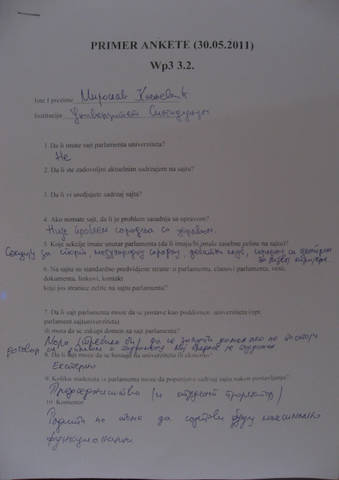 PRIMER ANKETE (30.05.2011)
Wp3 3.2.
Ime i prezime Мирослав
Institucija Универзитет Сингидунум
1. Da li imate sajt parlamenta univerziteta?
Не
2. Da li ste zadovoljni aktuelnim sadrzajem na sajtu?
3. Da li vi uredjujete sadrzaj sajta?
4. Ako nemate sajt, da li je problem saradnja sa upravom?
Није проблем сарадња са управом.
5. Koje sekcije imate unutar parlamenta (da li imaju/bi imale zasebne zelite na sajtu)?
Секцију за спорт, међународну сарадњу, дебатни клуб,
за развој каријере.
6. Na sajtu su standardno predvidjene strane: o parlamentu, clanovi parlamenta, vesti,
dokumenta, linkovi, kontakt
koje jos stranice zelite na sajtu parlamenta?
7. Da li sajt parlamenta moze da se postavi kao poddomen univerziteta (npr.
parlament.sajtuniverziteta)
ili mora da se zakupi domen za sajt parlamenta?
Мора (требало би) да се закупи домен ако не постоји
договор са
8. Da li sajt moze da se hostuje na univerzitetu ili eksterno?
Екстерно
9. Koliko studenata iz parlamenta moze da popunjava sadrzaj sajta nakon postavljanja?
Председништво (и студент проректор)
10. Komentar
Радити на томе да сајтови буду максимално
функционални